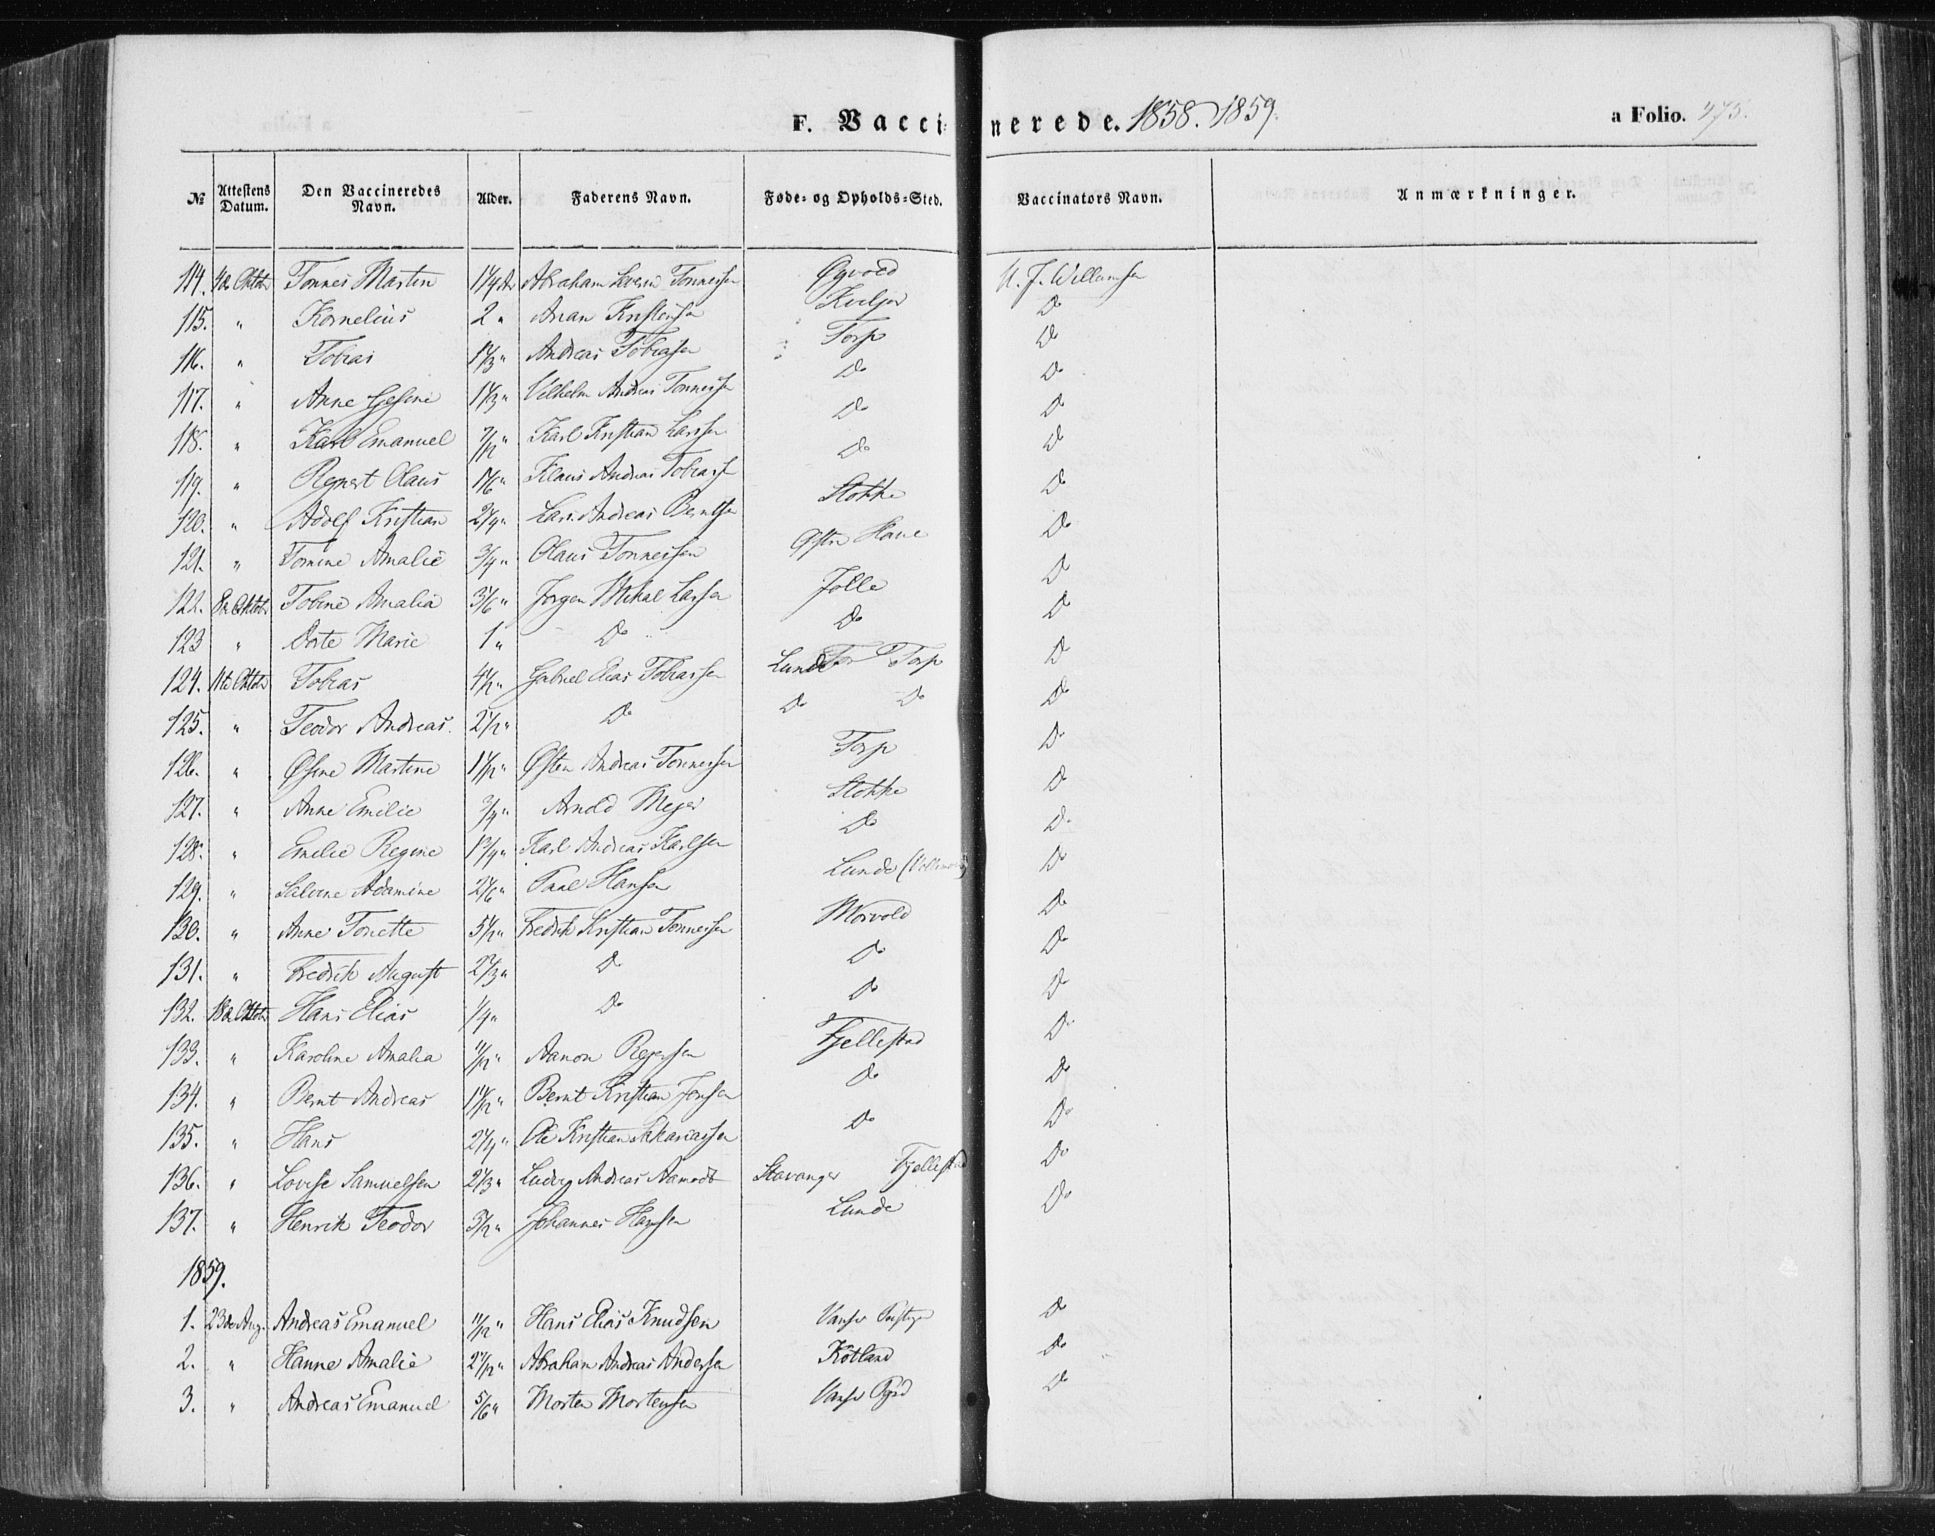 F. Vaccinerede. 1858. 1859. a Folio. 475.
№ Attestens Datum. Den Vaccineredes Navn. Alder. Faderens Navn. Føde- og Opholds-Sted. Vaccinators Navn. Anmærkninger.
114. 4de Oktbr Tønnes Martin 1 1/4 Ar Abraham Severin Tønnessen Øyvold U. J. Willumsen
115. " Kornelius 2 " Anan Kristensen Kviljo Do
116. " Tobias 1 1/3 " Andreas Tobiassen Torp Do
117. " Anne Gesine 1 1/3 " Vilhelm Andreas Tønnessen Do Do
118. " Karl Emanuel 7/12 " Karl Kristian Larsen Do Do
119. " Regnert Olaus 1 1/6 " Klaus Andreas Tobiass Do Do
120. " Adolf Kristian 2 1/4 " Lars Andreas Berntsen Stokke Do
121. " Tomine Amalie 3/4 " Olaus Tønnessen Østre Haue Do
122. 8de Oktbr Tobine Amalia 3 1/6 " Jørgen Mikal Larsen Jølle Do
123 " Dorte Marie 1 " Do Do Do
124. 11te Oktbr Tobias 4 1/2 " Gabriel Elias Tobiassen Lunde Torp Do
125. " Teodor Andreas. 2 1/2 " Do Do Do Do
126. " Osine Martine 1 1/12 " Østen Andreas Tønnessen Torp Do
127. " Anne Emilie 3/4 " Arnold Mejer Stokke Do
128. " Emilie Regine 1 3/4 " Karl Andreas Karlsen Do Do
129. " Salvine Adamine 2 1/6 " Paal Hansen Lunde Do
130. " Anne Tonette 5 1/2 " Fredrik Kristian Tønnessen Morvold Do
131. " Fredrik August 2 2/3 " Do Do Do
132. 18de Oktbr Hans Elias 1/4 " Do Do Do
133. " Karoline Amalia 11/12 " Aanon Rejersen Fjellestad Do
134. " Bernt Andreas 1 1/12 " Bernt Kristian Jensen Do Do
135. " Hans 2 1/4 " Ole Kristian Sakariassen Do Do
136. " Lovise Samuelsen 2 1/3 " Ludvig Andreas Aamodt Stavanger Fjellestad Do
137. " Henrik Teodor 5/12 " Johannes Hansen Lunde Do
1859.
1. 23de Aug. Andreas Emanuel 11/12 " Hans Elias Knudsen Vanse Do
2. " Hanne Amalie 2 1/12 " Abraham Andreas Andersen Kotland Do
3. " Andreas Emanuel 5/6 " Morten Mortensen Vanse Do